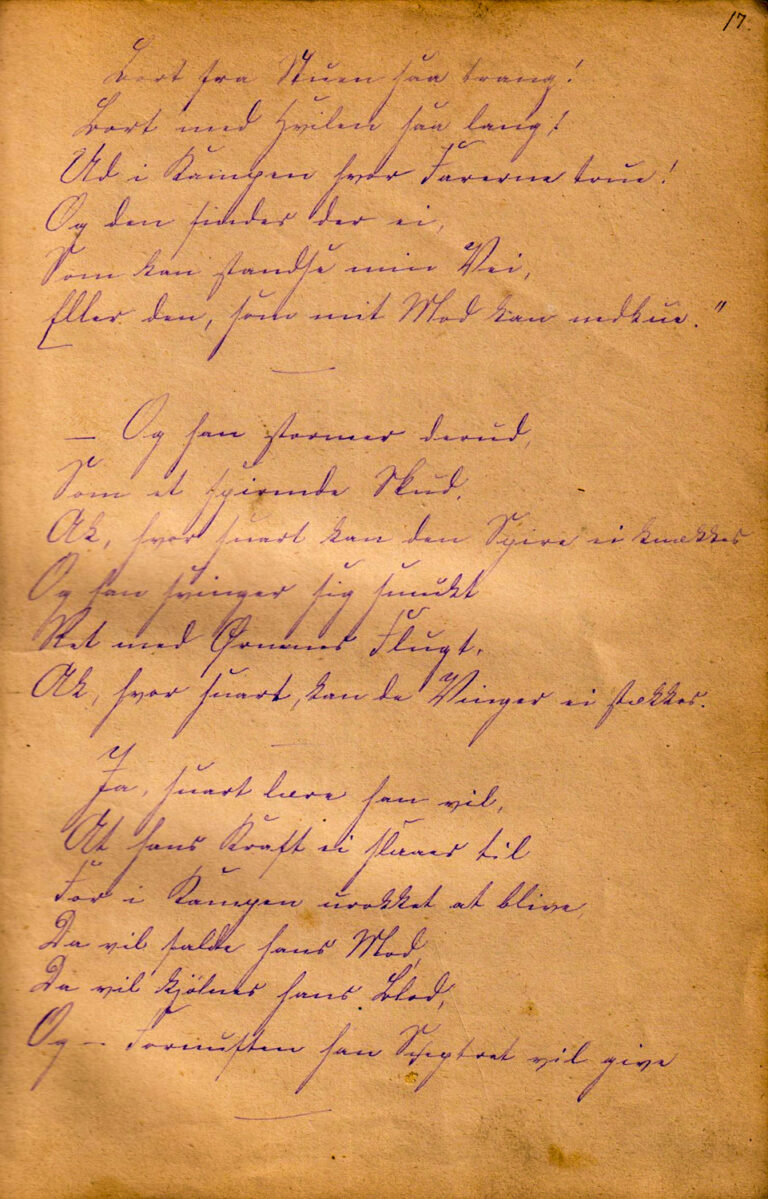 17.
Bort fra Stuen saa trang!
Bort med Hvilen saa lang!
Ud i Kampen hvor Farerne true!
Og den findes der ei,
Som kan standse min Vei,
Eller den, som mit Mod kan nedkue."
— Og han stormer derud,
Som et spirende Skud.
Ak, hvor snart kan den Spire ei knækkes
Og han svinger sig smukt
Ret med Ørnenes Flugt.
Ak, hvor snart, kan de Vinger ei stækkes.
Ja, snart lære han vil,
At hans Kraft ei slaaer til
For i Kampen urokket at blive
Da vil falde hans Mod,
Da vil kjölnes hans Blod,
Og — Fornuften han Sceptret vil give